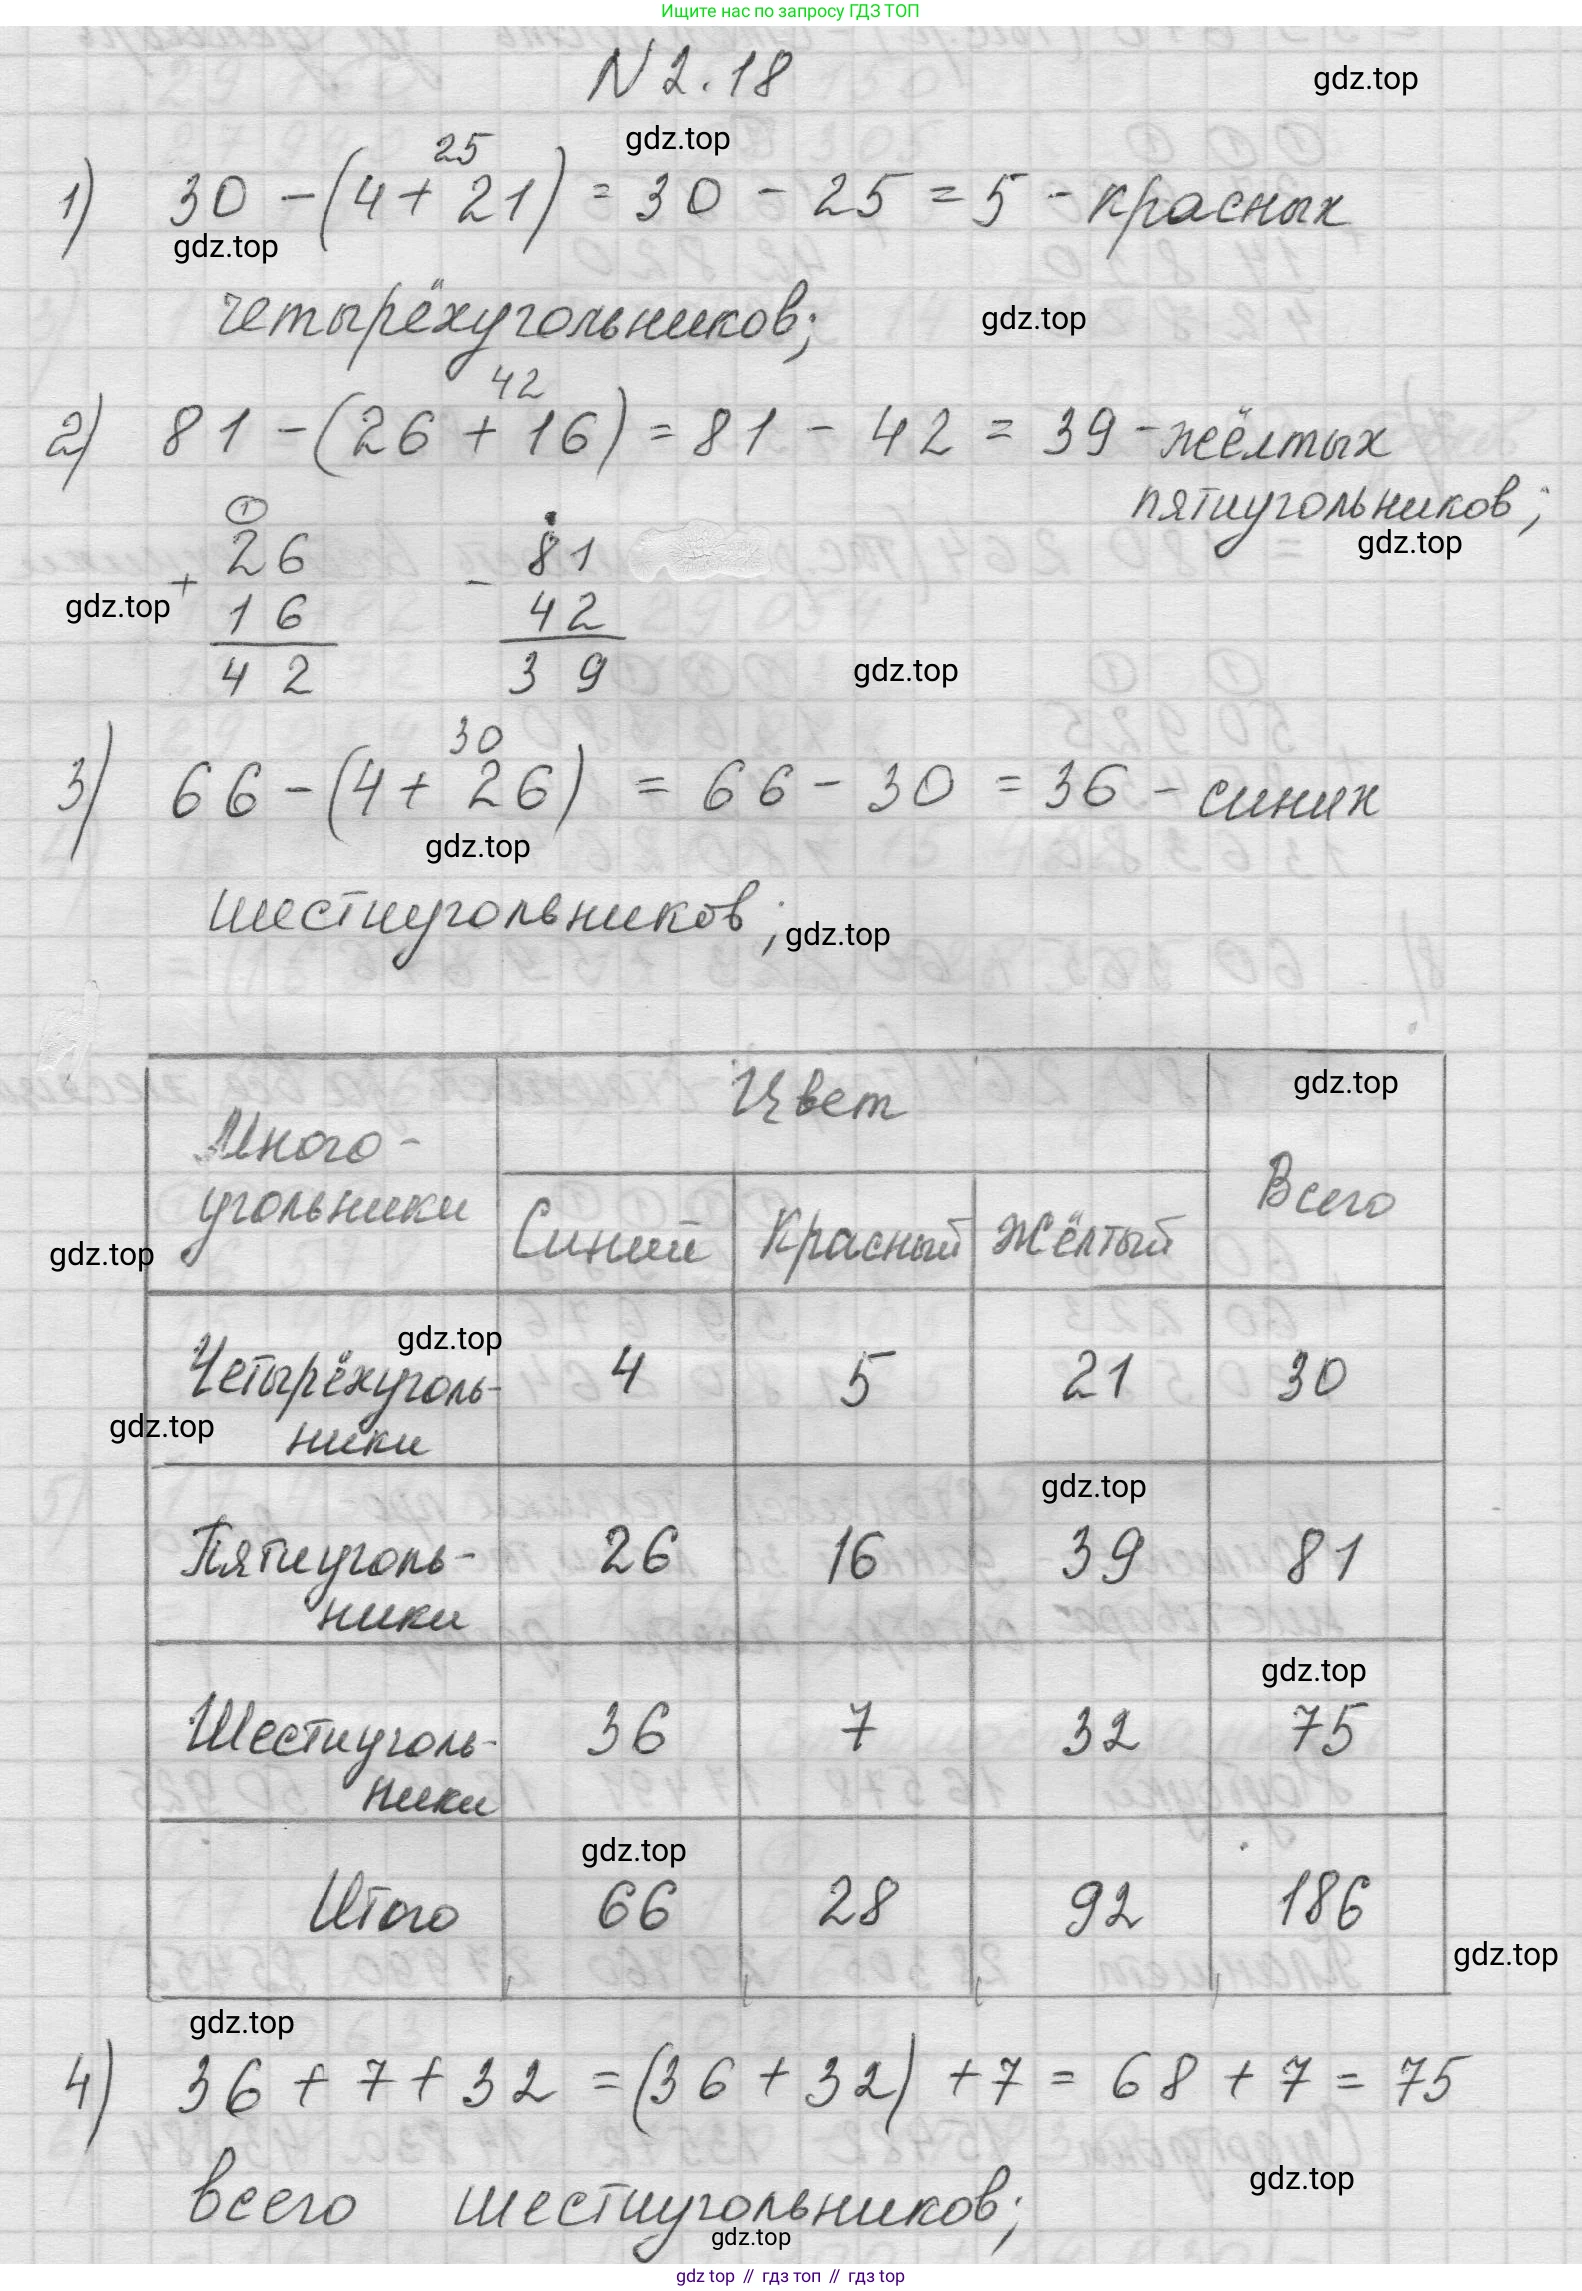 Ищите нас по запросу ГДЗ ТОП
N 2.18
gdz.top
gdz.top
25
1) 30 - (4 + 21) = 30 - 25 = 5 - красных
gdz.top
четырёхугольников;
gdz.top
42
2) 81 - (26 + 16) = 81 - 42 = 39 - жёлтых
пятиугольников;
gdz.top
1
+ 26
16
42
- 81
42
39
gdz.top
gdz.top
30
3) 66 - (4 + 26) = 66 - 30 = 36 - синих
gdz.top
шестиугольников;
gdz.top
Много-
угольники
Цвет
Всего
gdz.top
Синий Красный Жёлтый
gdz.top
gdz.top
Четырёхуголь-
ники 4 5 21 30
gdz.top
gdz.top
Пятиуголь-
ники 26 16 39 81
gdz.top
Шестиуголь-
ники 36 7 32 75
gdz.top
Итого 66 28 92 186
gdz.top
gdz.top
4) 36 + 7 + 32 = (36 + 32) + 7 = 68 + 7 = 75
всего шестиугольников;
gdz.top
gdz.top
gdz top // гдз топ // гдз top